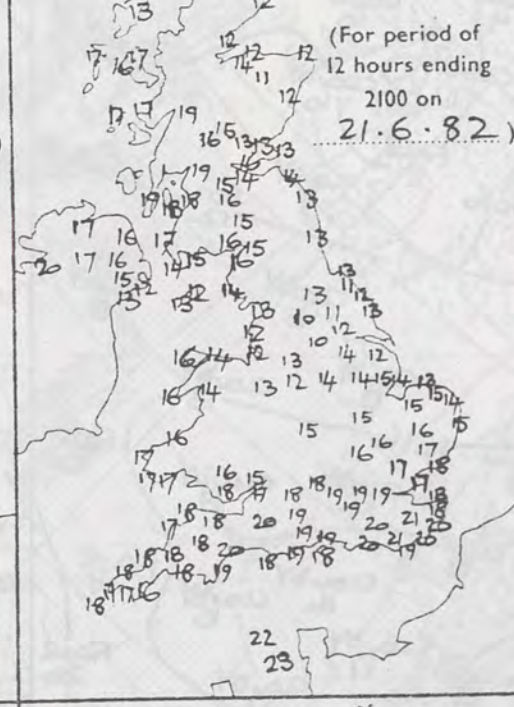 13 12
(For period of
12 hours ending
2100 on
21.6.82)
12 12 12
17 17 16 14 11
12
17 17 19
16 15 13 13 13
19 14 14
15 13
19 18 18 16
15
17 16 17 16 15 13
20 17 16 14 15 16
15 13
12 12 14 13 11 12
13 13 13 10 11 13
12 10 12
16 14 12 13 14 12
16 14 13 12 14 14 15 14 13
15 14
15 15 15
16 16 16 16
17 17 17 18
17 17 16 15 17
18 17 18 18 19 19 19 18
18 19 19 18
17 18 20 19 20 21 20
18 19 19 21 20
18 18 20 18 19 18 20 19
18 18 19
18 17 17 16
22
23